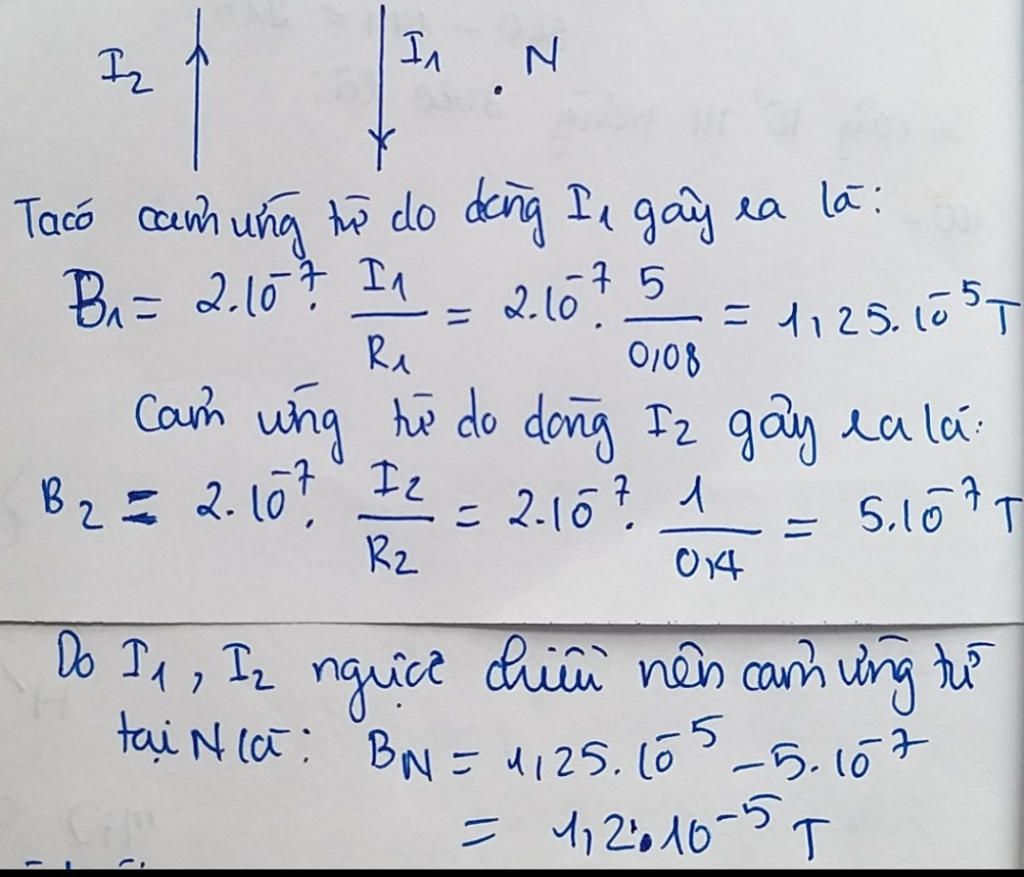 I2 I1 N
Ta có cảm ứng từ do dòng I1 gây ra là:
B1 = 2.10^-7. I1/R1 = 2.10^-7. 5/0,08 = 1,25.10^-5 T
Cảm ứng từ do dòng I2 gây ra là:
B2 = 2.10^-7. I2/R2 = 2.10^-7. 1/0,4 = 5.10^-7 T
Do I1, I2 ngược chiều nên cảm ứng từ
tại N là: BN = 1,25.10^-5 - 5.10^-7
= 1,2.10^-5 T